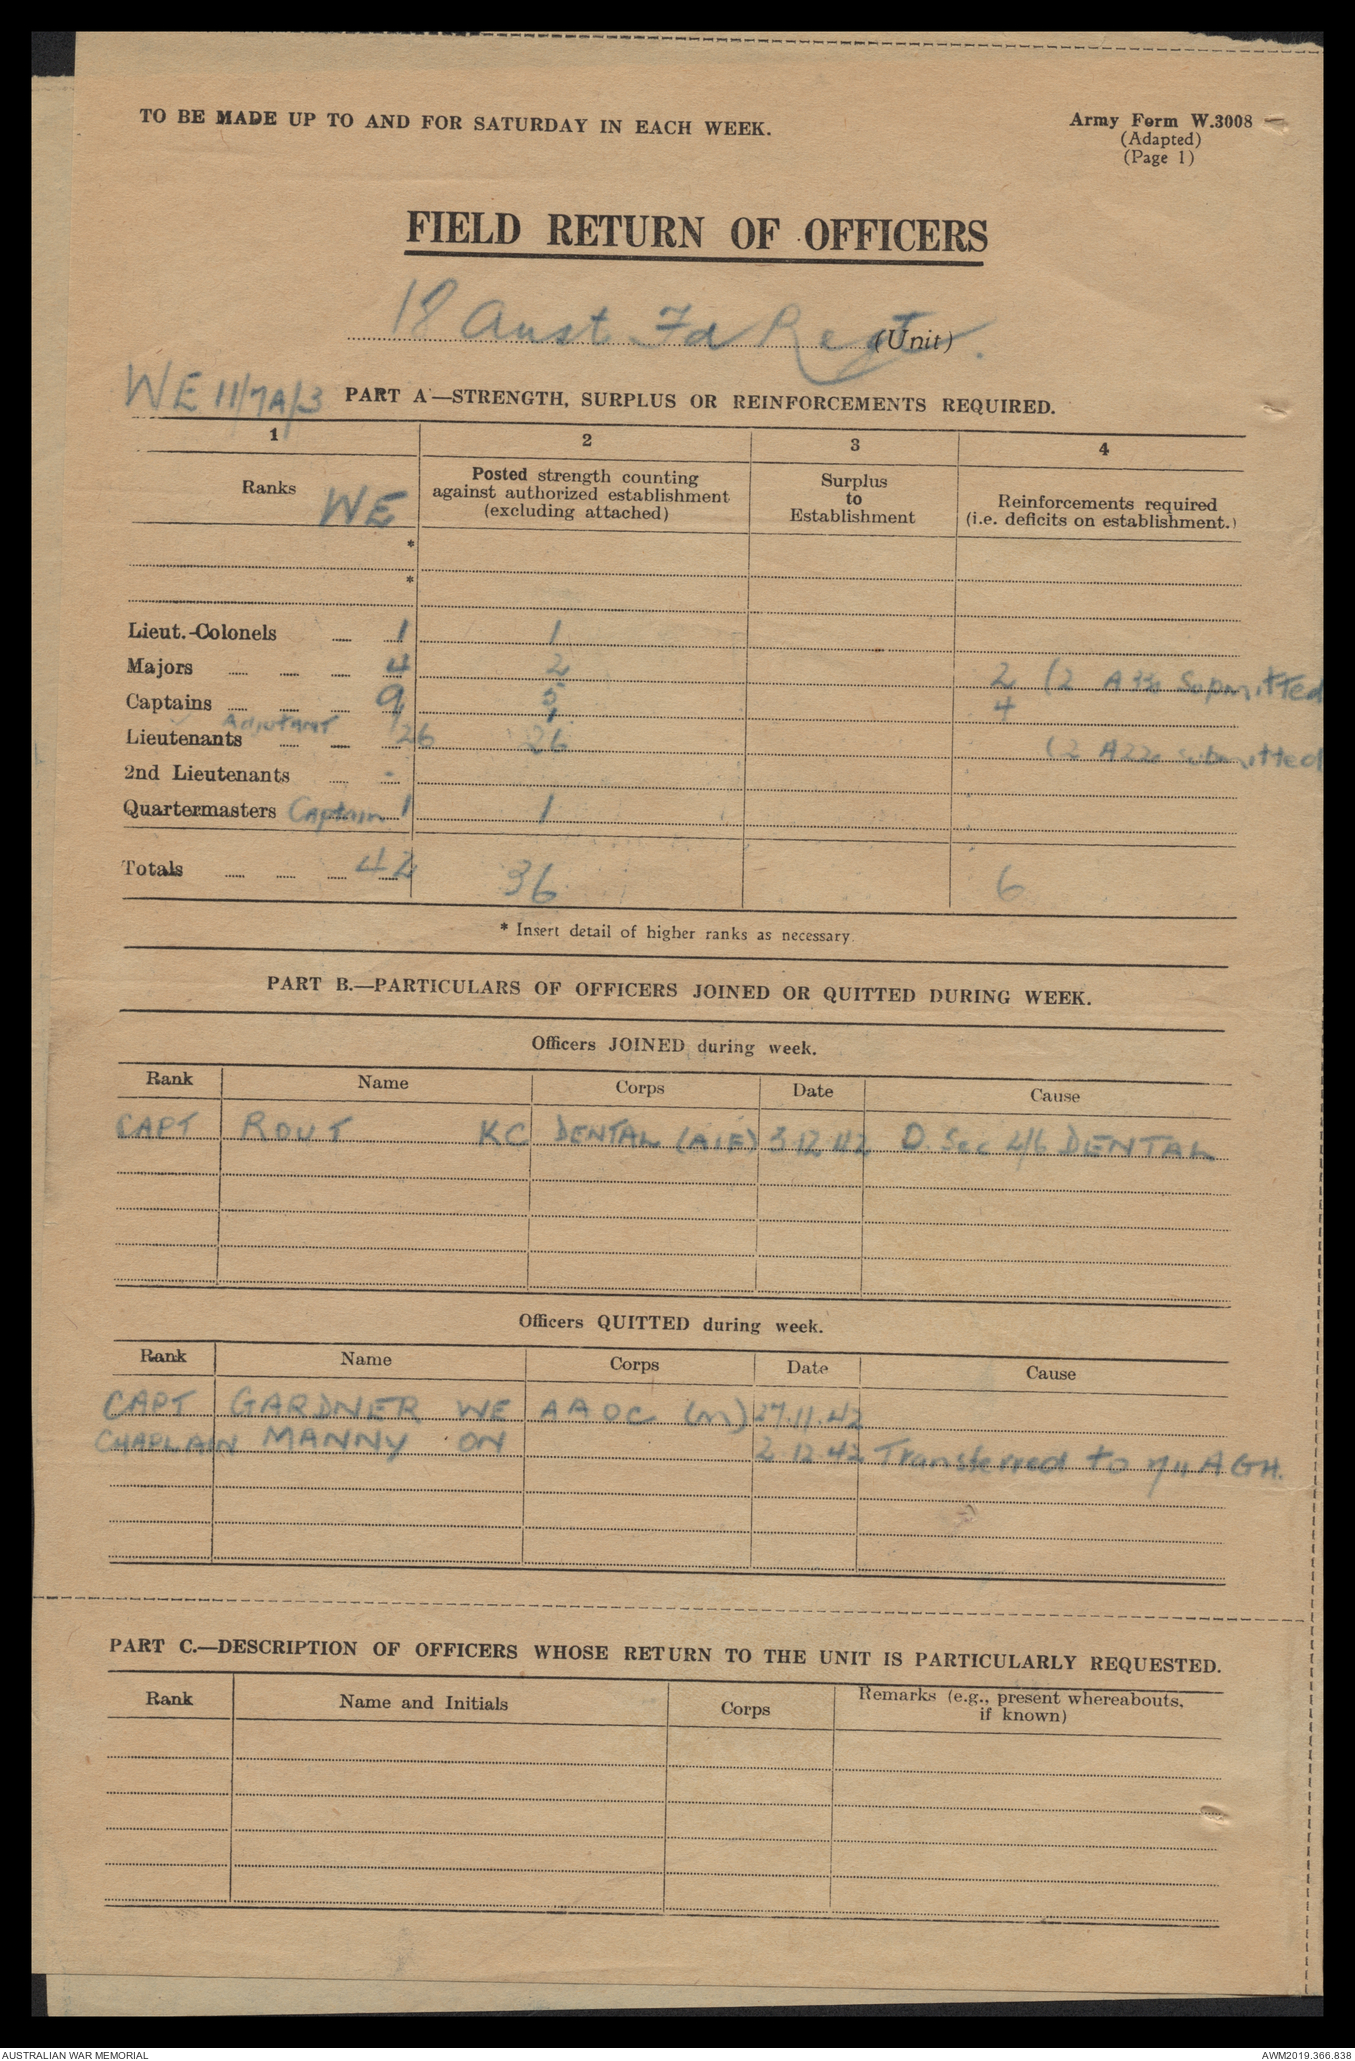 TO BE MADE UP TO AND FOR SATURDAY IN EACH WEEK.
Army Form W.3008
(Adapted)
(Page 1)
FIELD RETURN OF OFFICERS
18 Aust. Fd Regt. (Unit)
WE 11/7A/3 PART A—STRENGTH, SURPLUS OR REINFORCEMENTS REQUIRED.
1 2 3 4
Ranks WE
Posted strength counting against authorized establishment (excluding attached)
Surplus to Establishment
Reinforcements required (i.e. deficits on establishment.)
*
*
Lieut.-Colonels 1 1
Majors 4 2 2 (2 submitted
Captains 9 5 4
Adjutant 1 1
Lieutenants 26 26 (2 submitted
2nd Lieutenants -
Quartermasters Captain 1 1
Totals 42 36 6
* Insert detail of higher ranks as necessary.
PART B.—PARTICULARS OF OFFICERS JOINED OR QUITTED DURING WEEK.
Officers JOINED during week.
Rank Name Corps Date Cause
CAPT ROUT KC DENTAL (AIF) 3.12.42 D. Sec 2/6 DENTAL
Officers QUITTED during week.
Rank Name Corps Date Cause
CAPT GARDNER WE AAOC (M) 27.11.42
CHAPLAIN MANNY ON 2 12 42 Transferred to AGH.
PART C.—DESCRIPTION OF OFFICERS WHOSE RETURN TO THE UNIT IS PARTICULARLY REQUESTED.
Rank Name and Initials Corps Remarks (e.g., present whereabouts, if known)
AUSTRALIAN WAR MEMORIAL
AWM2019.366.838